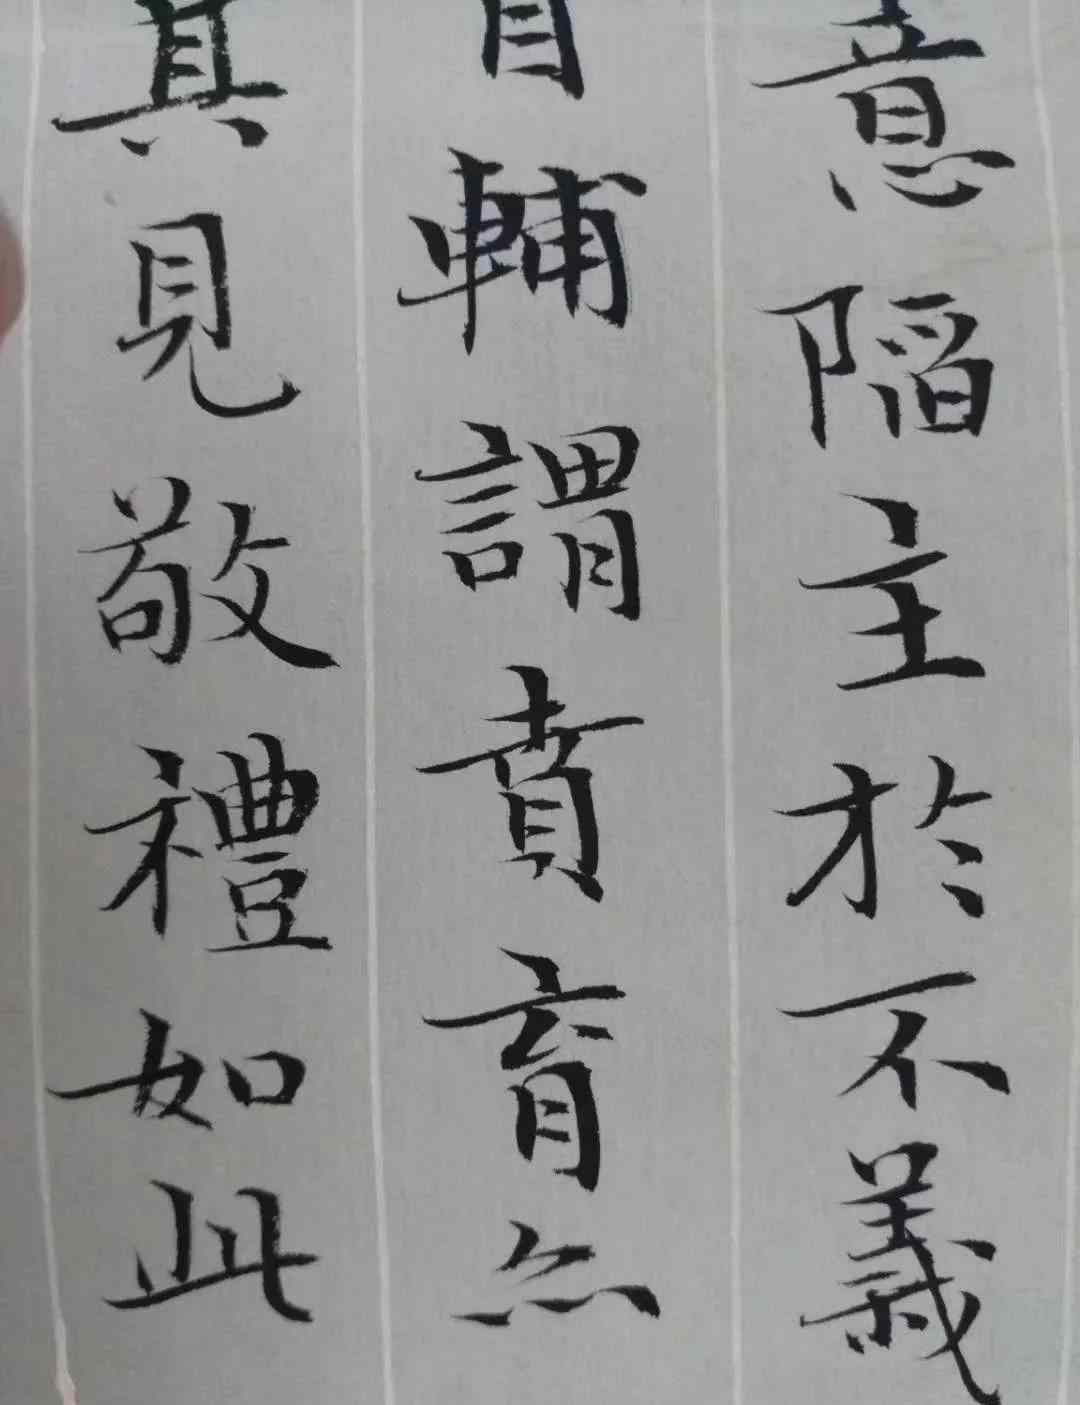 意陷主於不義
輔謂賁育亦
其見敬禮如此